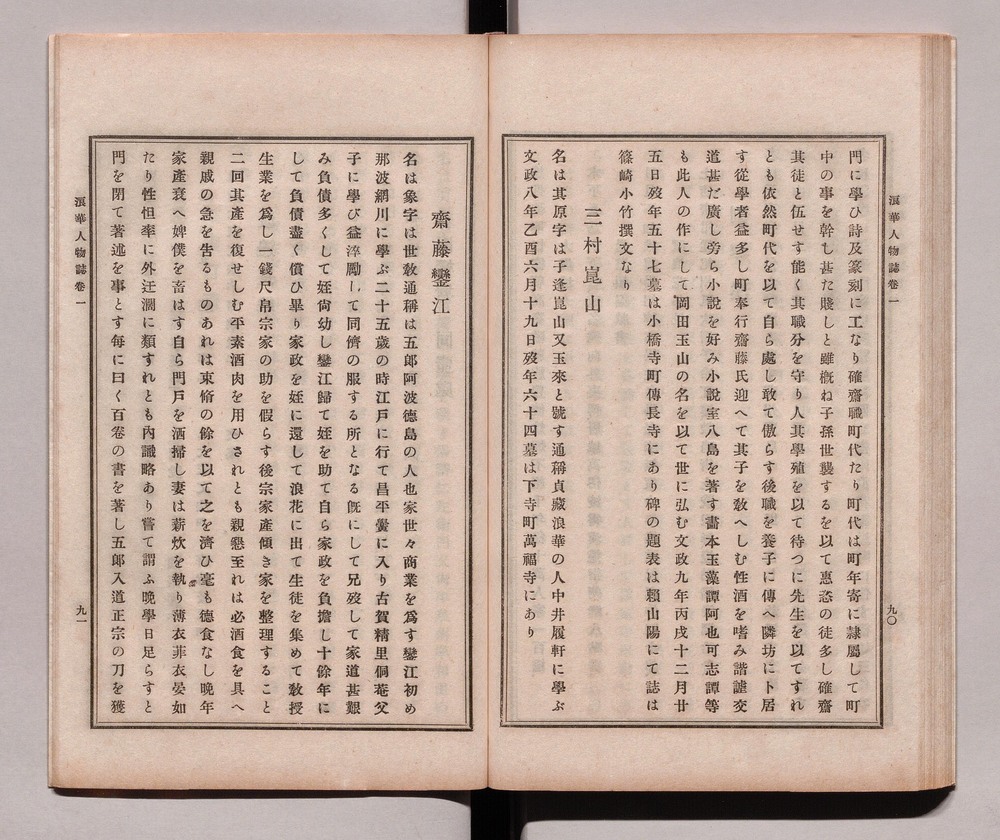 浪華人物誌卷一
九〇
門に學ひ詩及篆刻に工なり確齋職町代たり町代は町年寄に隷屬して町
中の事を幹し甚た賤しと雖槪ね子孫世襲するを以て惠恣の徒多し確齋
其徒と伍せす能く其職分を守り人其學殖を以て待つに先生を以てすれ
とも依然町代を以て自ら處し敢て傲らす後職を養子に傳へ隣坊に卜居
す從學者益多し町奉行齋藤氏迎へて其子を敎へしむ性酒を嗜み諧謔交
道甚だ廣し旁ら小說を好み小說室八島を著す畵本玉藻譚阿也可志譚等
も此人の作にして岡田玉山の名を以て世に弘む文政九年丙戌十二月廿
五日歿年五十七墓は小橋寺町傳長寺にあり碑の題表は賴山陽にて誌は
篠崎小竹撰文なり
三村崑山
名は其原字は子逢崑山又玉來と號す通稱貞藏浪華の人中井履軒に學ぶ
文政八年乙酉六月十九日歿年六十四墓は下寺町萬福寺にあり
齋藤鑾江
名は象字は世敎通稱は五郞阿波德島の人也家世々商業を爲す鑾江初め
那波網川に學ぶ二十五歲の時江戸に行て昌平黌に入り古賀精里侗菴父
子に學び益淬勵して同儕の服する所となる旣にして兄歿して家道甚艱
み負債多くして姪尙幼し鑾江歸て姪を助て自ら家政を負擔し十餘年に
して負債盡く償ひ畢り家政を姪に還して浪花に出て生徒を集めて敎授
生業を爲し一錢尺帛宗家の助を假らす後宗家產傾き家を整理すること
二回其產を復せしむ平素酒肉を用ひされとも親懇至れは必酒食を具へ
親戚の急を吿るものあれは束脩の餘を以て之を濟ひ毫も德食なし晚年
家產衰へ婢僕を畜はす自ら門戸を洒掃し妻は薪炊を執り薄衣菲衣晏如
たり性怛率に外迂濶に類すれとも內識略あり嘗て謂ふ晚學日足らすと
門を閉て著述を事とす每に曰く百卷の書を著し五郞入道正宗の刀を獲
浪華人物誌卷一
九一